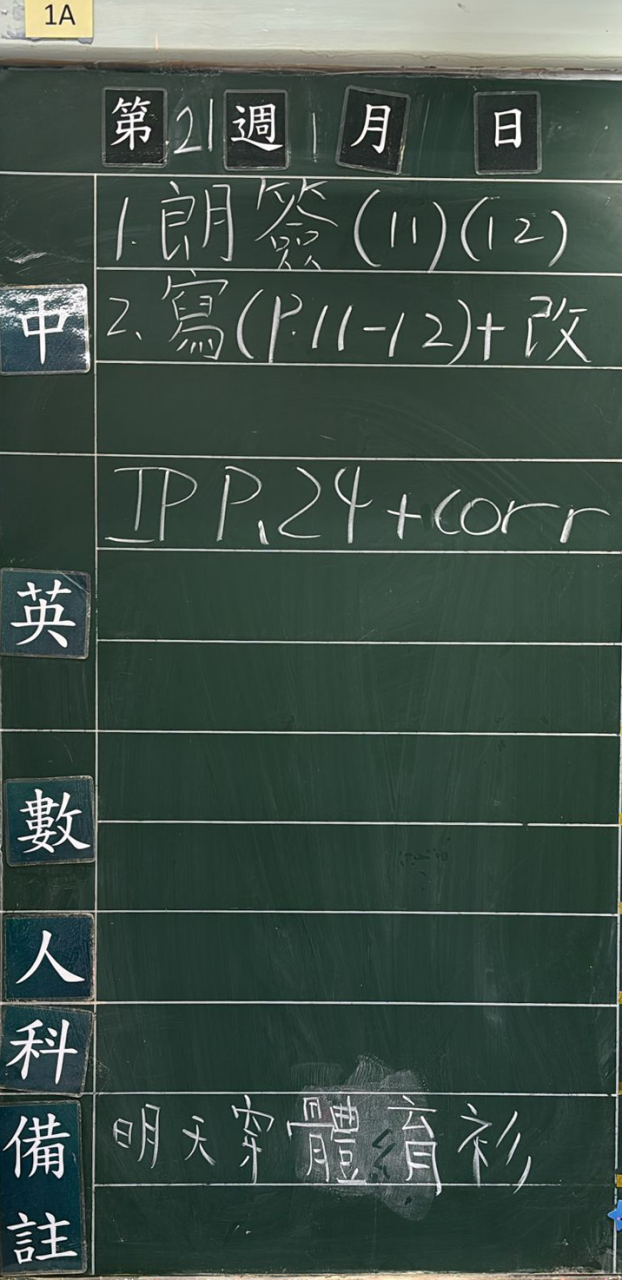 1A
第21週1月 日
1.朗簽(11)(12)
中
2.寫(P.11-12)+改
IP P.24+corr
英
數
人
科
備註
明天穿體育衫